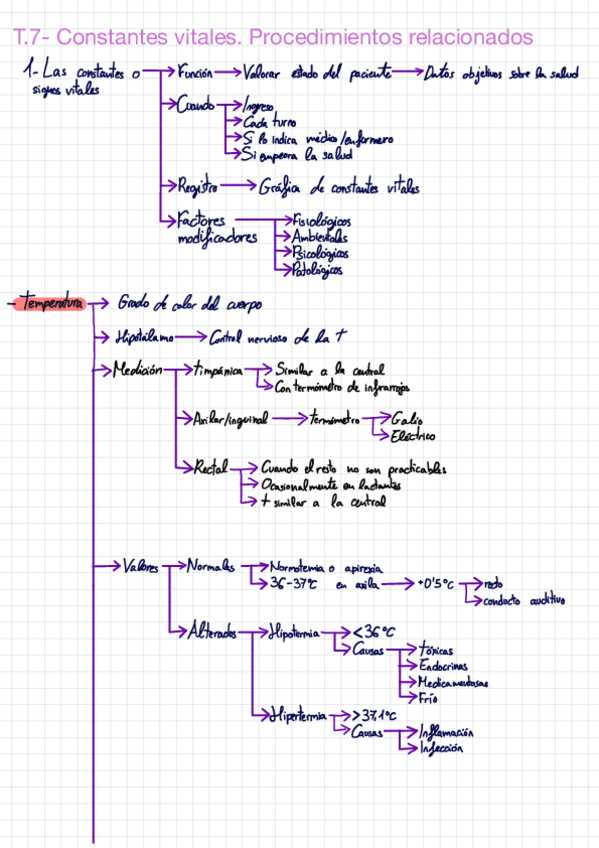 T.7- Constantes vitales. Procedimientos relacionados
1- Las constantes o signos vitales
Función
Valorar estado del paciente
Datos objetivos sobre la salud
Cuando
Ingreso
Cada turno
Si lo indica médico/enfermero
Si empeora la salud
Registro
Gráfica de constantes vitales
Factores modificadores
Fisiológicos
Ambientales
Psicológicos
Patológicos
- Temperatura
Grado de calor del cuerpo
Hipotálamo
Control nervioso de la T
Medición
timpánica
Similar a la central
Con termómetro de infrarrojos
Axilar/inguinal
termómetro
Galio
Eléctrico
Rectal
Cuando el resto no son practicables
Ocasionalmente en lactantes
+ similar a la central
Valores
Normales
Normotemia o apirexia
36-37ºC en axila
+0'5ºC
recto
conducto auditivo
Alterados
Hipotermia
<36ºC
Causas
tóxicas
Endocrinas
Medicamentosas
Frío
Hipertermia
>37,1ºC
Causas
Inflamación
Infección